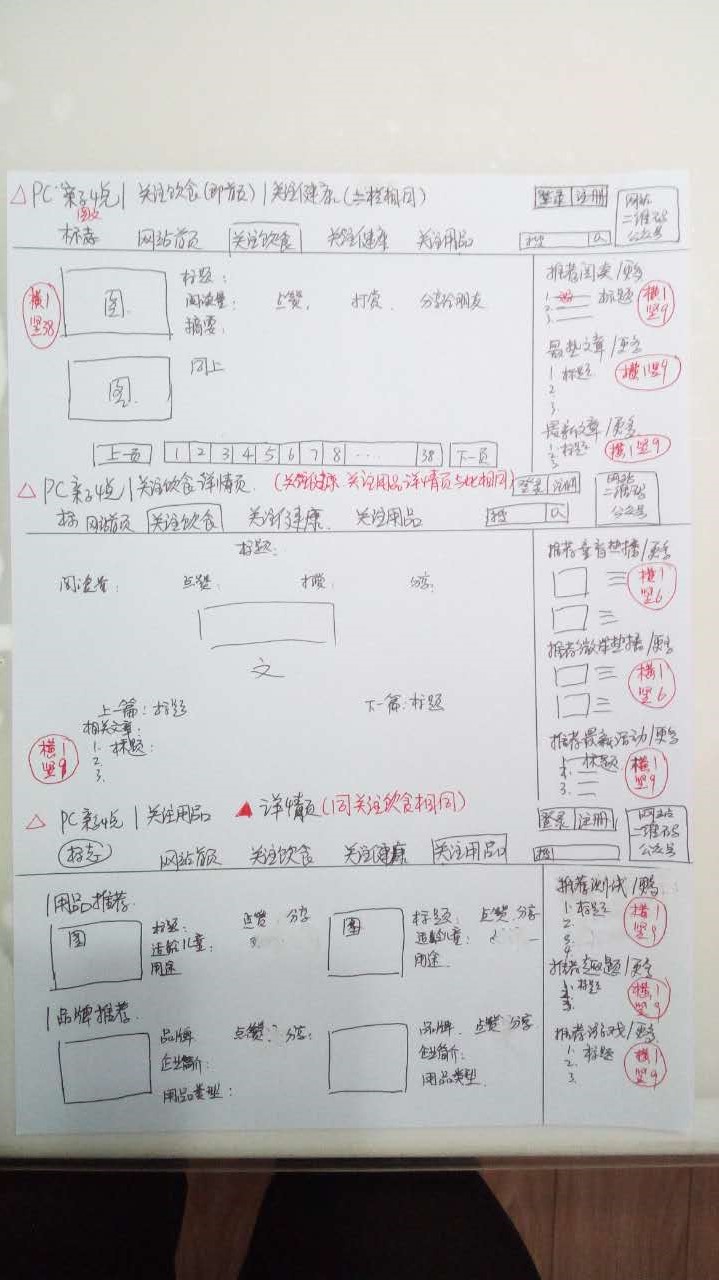 △ PC 亲子4点 | 关注饮食(即首页) | 关注健康(二栏相同)
登录 注册
网站二维码公众号
标志 网站首页 关注饮食 关注健康 关注用品
图 标题:
横1竖38
阅读量: 点赞, 打赏, 分享给朋友
摘要:
图 同上
上一页 1 2 3 4 5 6 7 8 ...... 38 下一页
推荐阅读/更多
1. 标题 横1竖9
2.
3.
最热文章/更多
1 标题 横1竖9
2.
3.
最新文章/更多
1. 标题 横1竖9
△ PC 亲子4点 | 关注饮食详情页. (关注健康 关注用品详情页与此相同) 登录 注册
网站二维码公众号
标 网站首页 关注饮食 关注健康. 关注用品
标题:
阅读量: 点赞: 打赏: 分享:
文
上一篇:标题 下一篇:标题
相关文章:
横1竖9
1. 标题:
2.
3.
推荐 热播/更多
横1竖6
推荐微课热播/更多
横1竖6
推荐最新活动/更多
标题 横1竖9
△ PC 亲子4点 | 关注用品 ▲ 详情页(同关注饮食相同)
登录 注册
网站二维码公众号
标志 网站首页 关注饮食 关注健康 关注用品
| 用品推荐.
图 标题: 点赞. 分享
适龄儿童:
用途
图 标题: 点赞. 分享
适龄儿童:
用途
| 品牌推荐.
品牌 点赞: 分享:
企业简介:
用品类型:
品牌. 点赞 分享
企业简介:
用品类型.
推荐测试/更多
1. 标题 横1竖9
2.
3.
4
推荐 题/更多
标题 横1竖9
推荐游戏/更多
1. 标题 横1竖9
2.
3.